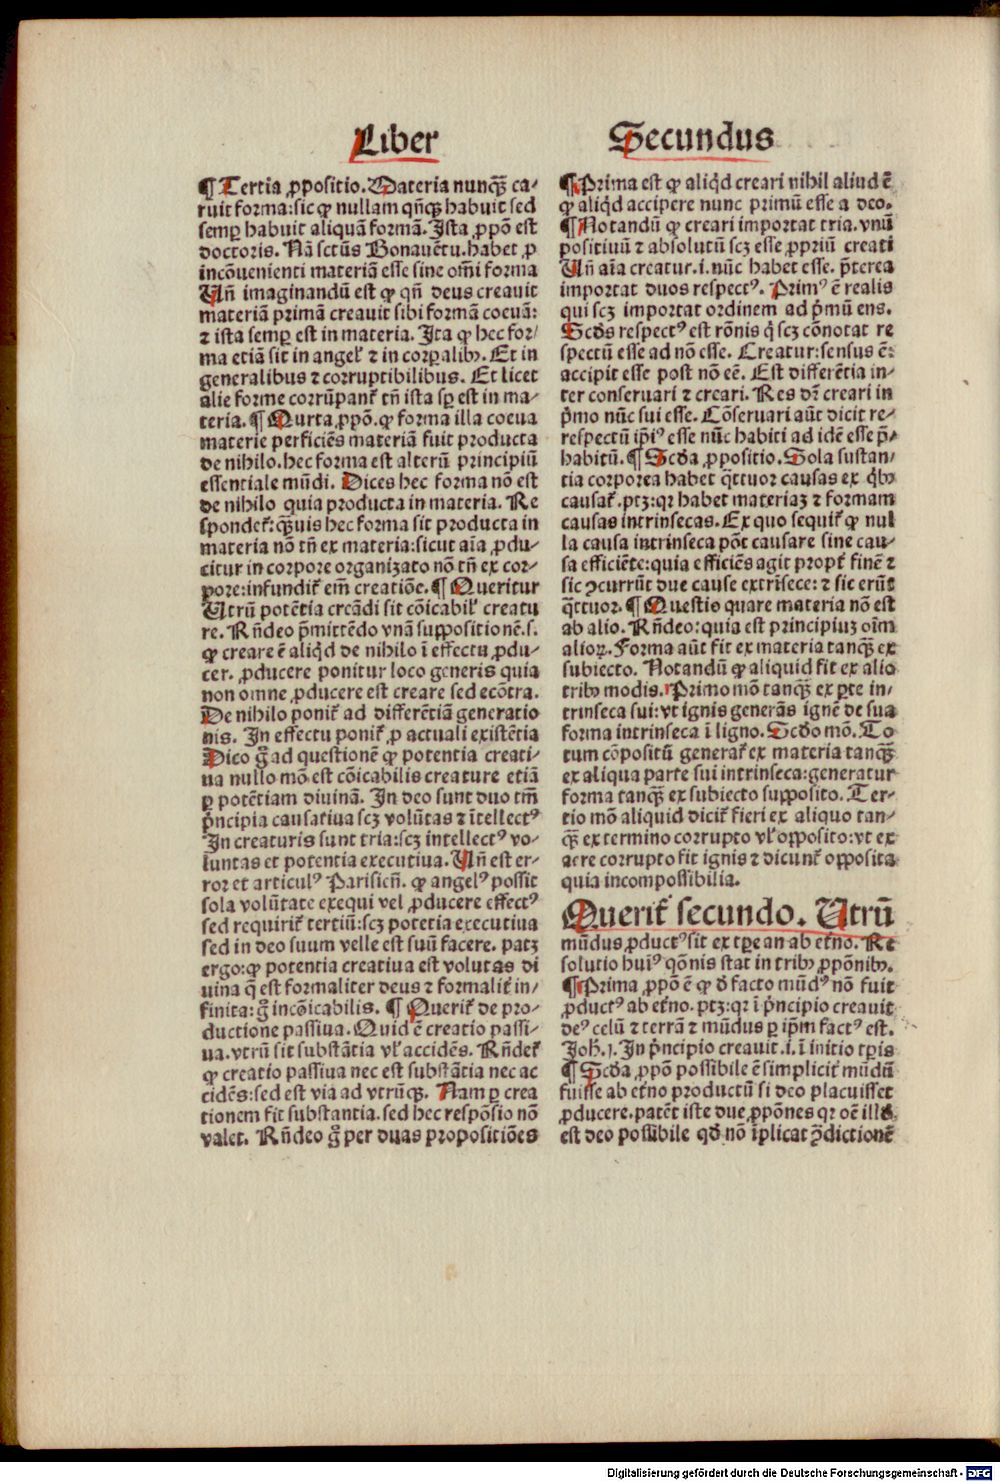 Liber
¶ Tertia ꝓpositio. Materia nunqᷓꝫ ca⸗
ruit forma: sic ꝙ nullam qn̄qꝫ habuit sed
semꝑ habuit aliquā formā. Ista ꝓpō est
doctoris. Nā sctūs Bonauētu. habet ꝓ
incōuenienti materiā esse sine om̄i forma
Un̄ imaginandū est ꝙ qn̄ deus creauit
materiā primā creauit sibi formā coeuā:
⁊ ista semꝑ est in materia. Ita ꝙ hec for⸗
ma etiā sit in angel̕ ⁊ in corꝑalibꝫ. Et in
generalibus ⁊ corruptibilibus. Et licet
alie forme corrūpant᷑ tn̄ ista sꝑ est in ma⸗
teria. ¶ Qurta ꝓpō. ꝙ formā illa coeua
materie perficiēs materiā fuit producta
de nihilo. hec forma est alterū principiū
essentiale mūdi. Dices hec forma nō est
de nihilo quia producta in materia. Re
spondet᷑: qᷓꝫuis hec forma sit producta in
materia nō tn̄ ex materia: sicut aīa ꝓdu⸗
citur in corpore organizato nō tn̄ ex cor⸗
pore: infundit᷑ em̄ creatiōe. ¶ Queritur
Utrū potētia creādi sit cōicabil̕ creatu
re. Rn̄deo p̄mittēdo vnā suppositionē. s.
ꝙ creare ē aliqd̕ de nihilo ī effectu ꝓdu⸗
cer. ꝓducere ponitur loco generis quia
non omne ꝓducere est creare sed ecōtra.
De nihilo ponit᷑ ad differētiā generatio
nis. In effectu ponit᷑ ꝓ actuali existētia
Dico gͦ ad questionē ꝙ potentia creati⸗
ua nullo mō est cōicabilis creature etiā
ꝑ potētiam diuinā. In deo sunt duo tm̄
pͥncipia causatiua scꝫ volūtas ⁊ ītellectꝰ
In creaturis sunt tria: scꝫ intellectꝰ vo⸗
luntas et potentia executiua. Un̄ est er⸗
ror et articulꝰ Parisieñ. ꝙ angelꝰ possit
sola volūtate exequi vel ꝓducere effectꝰ
sed requirit᷑ tertiū: scꝫ potētia executiua
sed in deo suum velle est suū facere. patꝫ
ergo: ꝙ potentia creatiua est volūtas di
uina q̄ est formaliter deus ⁊ formalit᷑ in⸗
finita: gͦ incōicabilis. ¶ Querit᷑ de pro⸗
ductione passiua. Quid ē creatio passi⸗
ua. vtrū sit substātia vl̕ accidēs. Rn̄det᷑
ꝙ creatio passiua nec est substātia nec ac
cidēs: sed est via ad vtrūqꝫ. Nam ꝑ crea
tionem fit substantia. sed hec respōsio nō
valet. Rn̄deo gͦ per duas propositiōes
Secundus
¶ Prima est ꝙ aliqd̕ creari nihil aliud ē
ꝙ aliqd̕ accipere nunc primū esse a deo.
¶ Notandū ꝙ creari importat tria. vnū
positiuū ⁊ absolutū scꝫ esse ꝓpriū creati
Un̄ aīa creatur. i. nūc habet esse. p̄terea
importat duos respectꝰ. Primꝰ ē realis
qui scꝫ importat ordinem ad pͥmū ens.
Scd̕s respectꝰ est rōnis qͥ scꝫ cōnotat re
spectū esse ad nō esse. Creatur: sensus ē:
accipit esse post nō eē. Est differētia in⸗
ter conseruari ⁊ creari. Res dr̄ creari in
pͥmo nūc sui esse. Cōseruari aūt dicit re⸗
respectū ip̄iꝰ esse nūc habiti ad idē esse p̄⸗
habitū. ¶ Scd̕a ꝓpositio. Sola sustan⸗
tia corporea habet qᷓttuor causas ex qͥbꝫ
causat᷑. ptꝫ: qꝛ habet materiaꝫ ⁊ formam
causas intrinsecas. Ex quo sequit᷑ ꝙ nul
la causa intrinseca pōt causare sine cau⸗
sa efficiēte: quia efficiēs agit propt᷑ finē ⁊
sic ꝯcurrūt due cause extrīsece: ⁊ sic erūt
qᷓttuor. ¶ Questio quare materia nō est
ab alio. Rn̄deo: quia est principiuꝫ oīm
alioꝝ. Forma aūt fit ex materia tanqᷓꝫ ex
subiecto. Notandū ꝙ aliquid fit ex alio
tribꝫ modis. Primo mō tanqᷓꝫ ex ꝑte in⸗
trinseca sui: vt ignis generās ignē de sua
forma intrinseca ī ligno. Scd̕o mō. To
tum cōpositū generat᷑ ex materia tanqᷓꝫ
ex aliqua parte sui intrinseca: generatur
forma tanqᷓꝫ ex subiecto supposito. Ter⸗
tio mō aliquid dicit᷑ fieri ex aliquo tan⸗
qᷓꝫ ex termino corrupto vl̕ opposito: vt ex
aere corrupto fit ignis ⁊ dicunt᷑ opposita
quia incompossibilia.
Querit᷑ secundo. Utrū
mūdus ꝓductꝰ sit ex tꝑe an ab et̕no. Re
solutio huiꝰ qōnis stat in tribꝫ ꝓpōnibꝫ.
¶ Prima ꝓpō ē ꝙ d̕ facto mūdꝰ nō fuit
ꝓductꝰ ab et̕no. ptꝫ: qꝛ ī pͥncipio creauit
deꝰ celū ⁊ terrā ⁊ mūdus ꝑ ip̄m factꝰ est.
Joh̄. 1. In pͥncipio creauit. i. ī initio tꝑis
¶ Scd̕a ꝓpō possibile ē simplicit᷑ mūdū
fuisse ab et̕no productū si deo placuisset
ꝓducere. patēt iste due ꝓpōnes qꝛ oē illd̕
est deo possibile qd̕ nō īplicat ꝯ̄dictionē
Digitalisierung gefördert durch die Deutsche Forschungsgemeinschaft - DFG